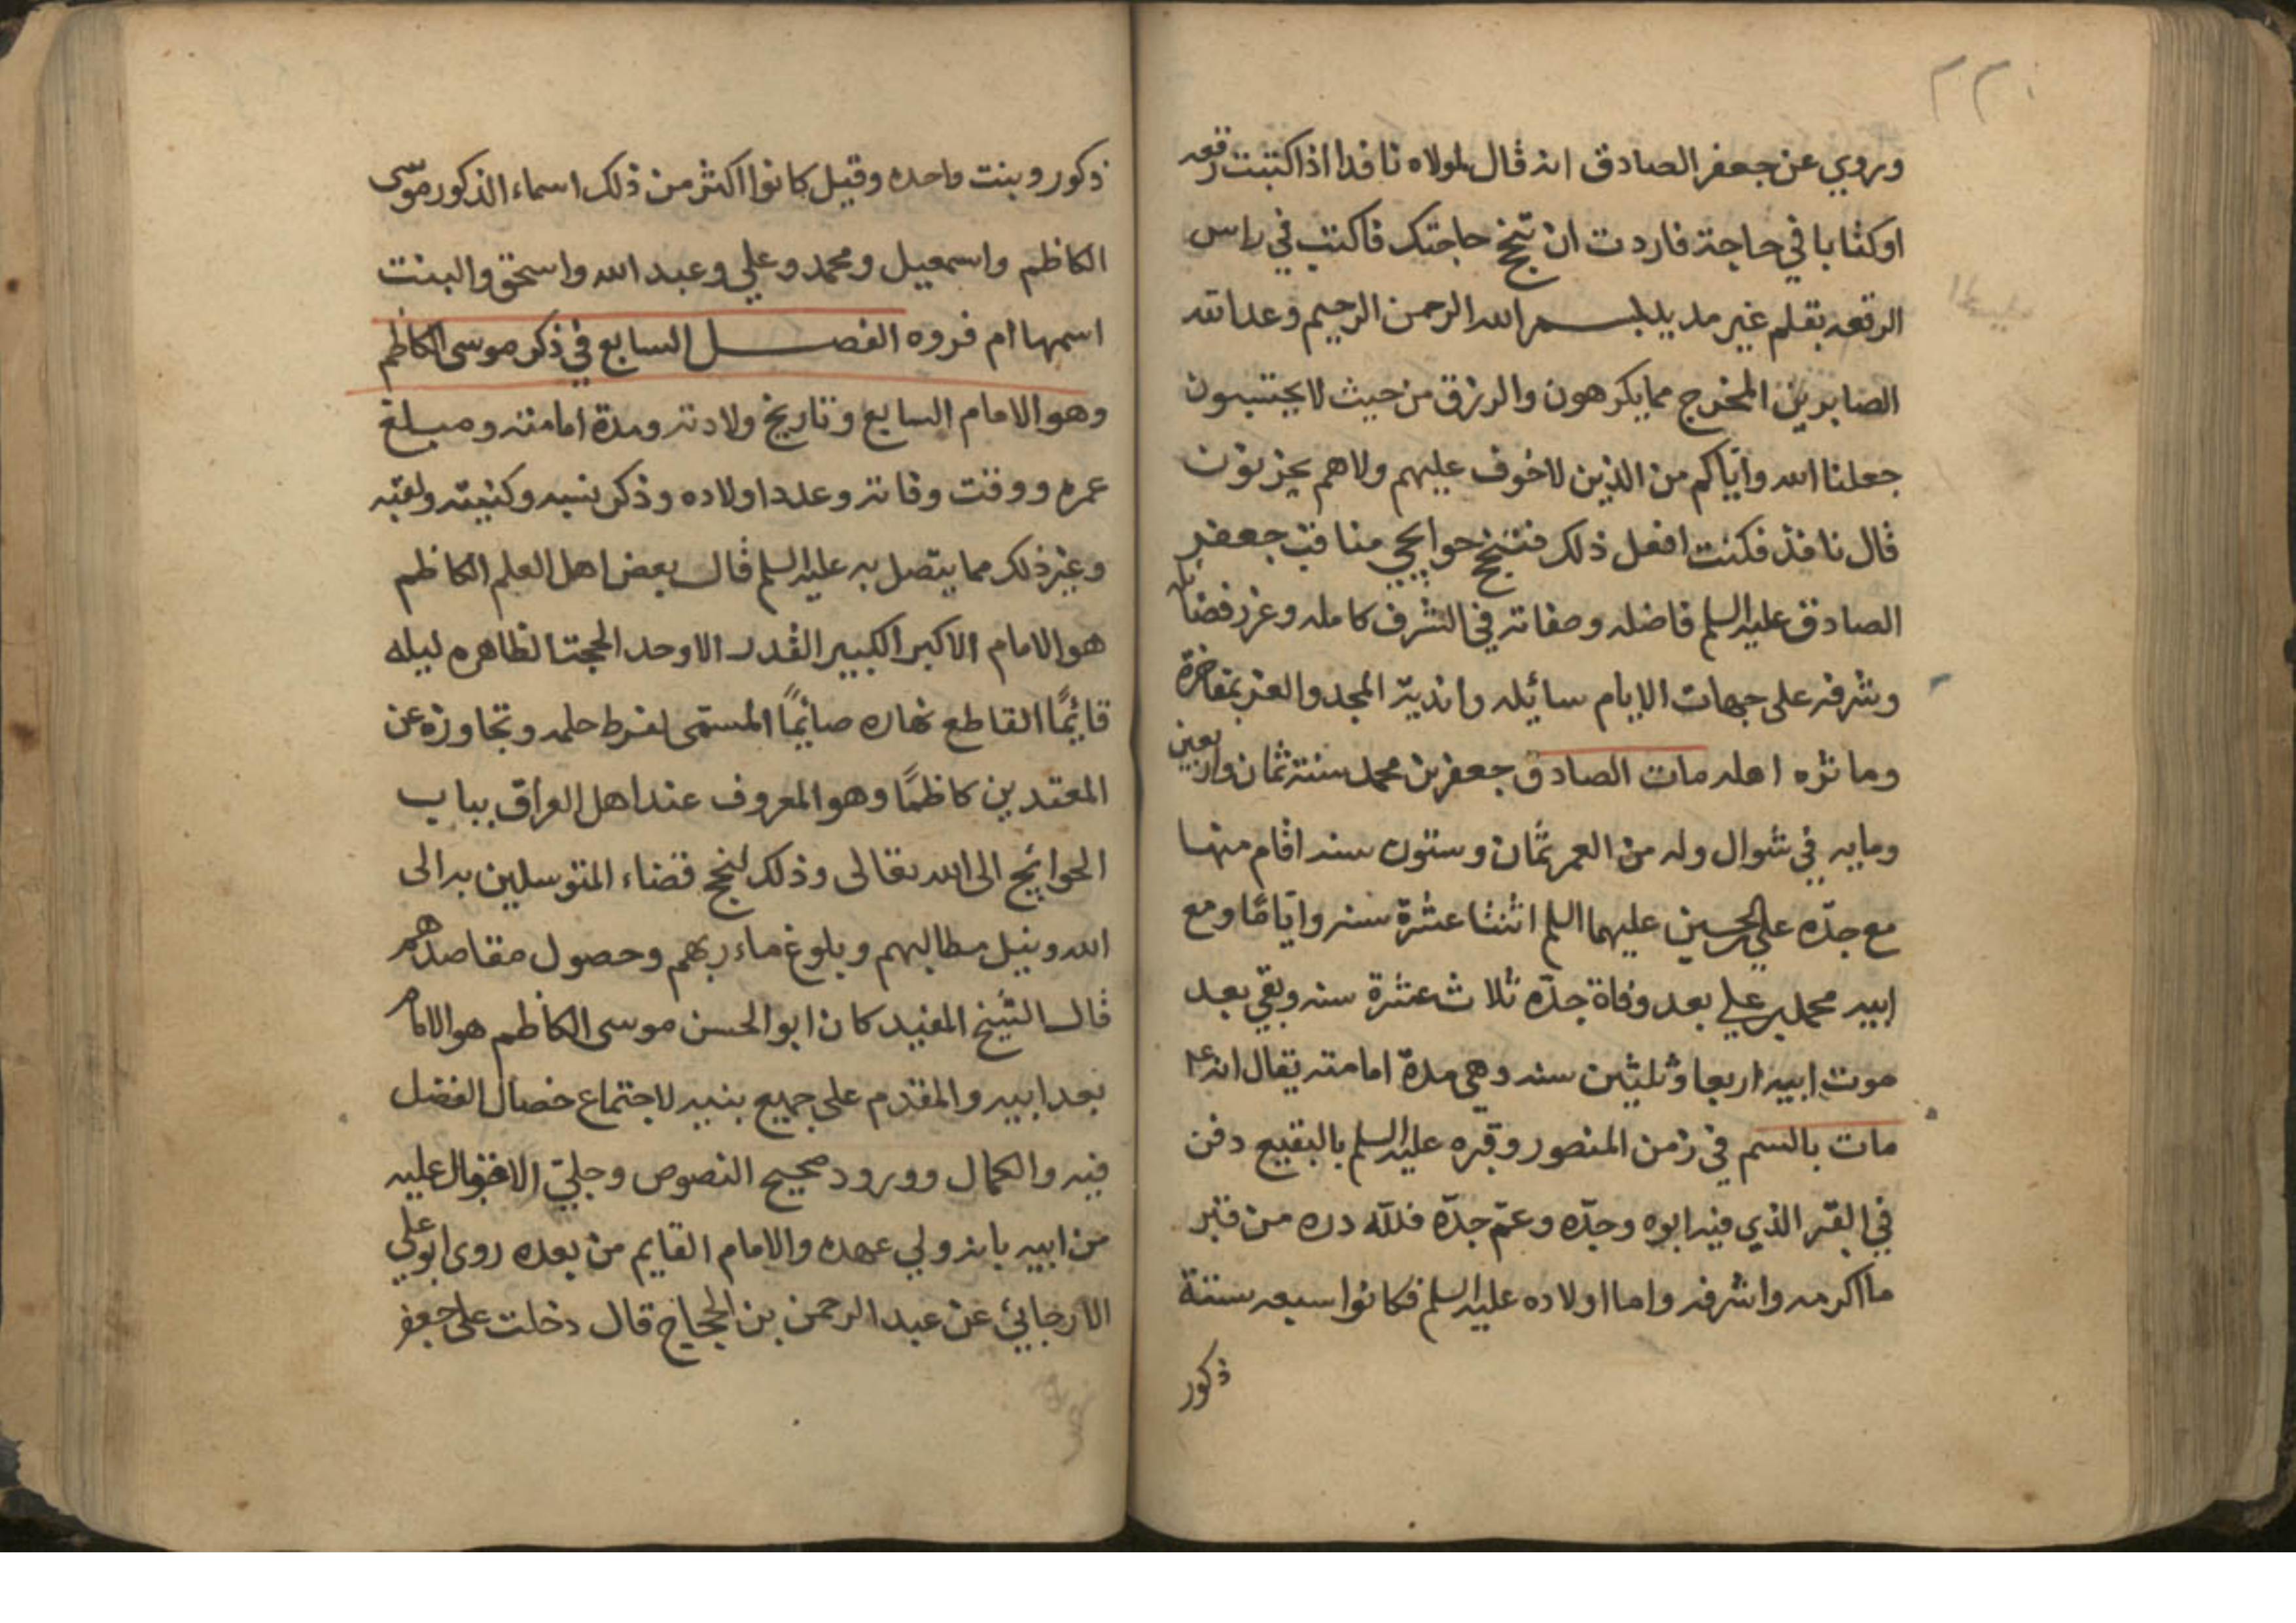 ٢٢٠
وروي عن جعفر الصادق انه قال لمولاه نافدا اذا كتبت رقعه
او كتابا في حاجة فاردت ان تنجح حاجتك فاكتب في راس
الرقعه بقلم غير مديد بسم الله الرحمن الرحيم وعد الله
الصابرين المخرج مما يكرهون والرزق من حيث لا يحتسبون
جعلنا الله واياكم من الذين لا خوف عليهم ولا هم يحزنون
قال نافذ فكنت افعل ذلك فتنجح حوايجي مناقب جعفر
الصادق عليه السلم فاضله وصفاته في الشرف كامله وغرر فضايله
وشرفه على جبهات الايام سائيله واندية المجد والعز بمفاخرة
وماثره اهله مات الصادق جعفر بن محمد سنة ثمان واربعين
ومايه في شوال وله من العمر ثمان وستون سنه اقام منها
مع جدّه علي الحسين عليهما السلم اثنتا عشرة سنه وايّامًا ومع
ابيه محمد بن علي بعد وفاة جدّه ثلاث عشرة سنه وبقي بعد
موت ابيه اربعا وثلثين سنه وهي مدة امامته يقال انه ع
مات بالسم في زمن المنصور وقبره عليه السلم بالبقيع دفن
في القبر الذي فيه ابوه وجدّه وعمّ جدّه فللّه دره من قبر
ما اكرمه واشرفه واما اولاده عليه السلم فكانوا سبعه ستة
ذكور
ذكور وبنت واحده وقيل كانوا اكثر من ذلك اسماء الذكور موسى
الكاظم واسمعيل ومحمد وعلي وعبد الله واسحق والبنت
اسمها ام فروه الفصل السابع في ذكر موسى الكاظم
وهو الامام السابع وتاريخ ولادته ومدة امامته ومبلغ
عمره ووقت وفاته وعدد اولاده وذكر نسبه وكنيته ولقبه
وغير ذلك مما يتصل به عليه السلم قال بعض اهل العلم الكاظم
هو الامام الاكبر الكبير القدر الاوحد الحجة الظاهره ليله
قائيمًا القاطع نهاره صائيمًا المسمى لفرط حلمه وتجاوزه عن
المعتدين كاظمًا وهو المعروف عند اهل العراق بباب
الحوائيج الى الله تعالى وذلك لنجح قضاء المتوسلين به الى
الله ونيل مطالبهم وبلوغ ماءربهم وحصول مقاصدهم
قال الشيخ المفيد كان ابو الحسن موسى الكاظم هو الامام
بعد ابيه والمقدم على جميع بنيه لاجتماع خصال الفضل
فيه والكمال وورود صحيح النصوص وجليّ الاقوال عليه
من ابيه بانه ولي عهده والامام القايم من بعده روى ابو علي
الارجائي عن عبد الرحمن بن الحجاج قال دخلت على جعفر